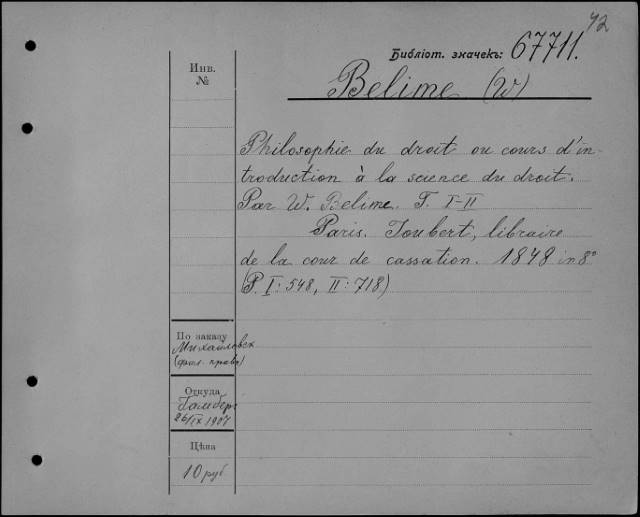 42
Библіот. значекъ: 67711.
Инв.
№
Belime (W)
Philosophie du droit ou cours d'in-
troduction à la science du droit.
Par W. Belime. T. I-II
Paris. Joubert, libraire
de la cour de cassation. 1848 in 8°
(P. I: 548, II: 718)
По заказу
Михайловск
(фил. права)
Откуда
26/IX 1907
Цѣна
10 руб